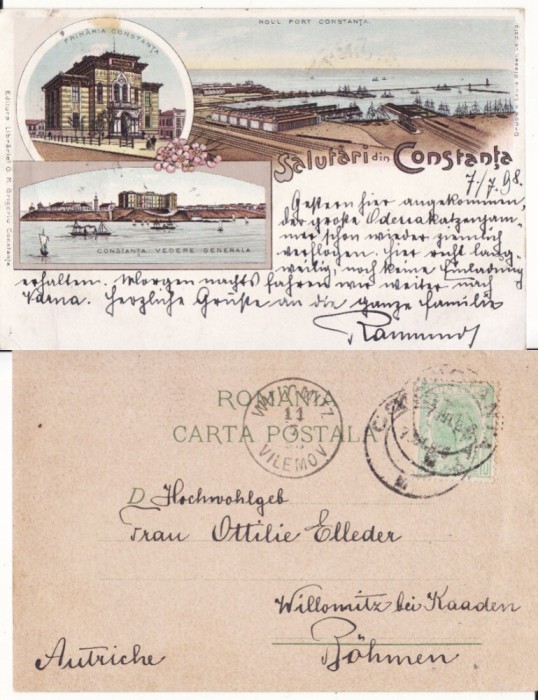 NOUL PORT CONSTANŢA
PRIMĂRIA CONSTANŢA
Salutări din Constanţa
CONSTANŢA VEDERE GENERALA
Editura Librăriei G. P. Grigoriu Constanţa
7/7. 98.
Gestern hier angekommen,
der große Odessakatzenjam-
mer schon wieder ziemlich
verflogen. hier recht lang-
weilig, noch keine Einladung
erhalten. Morgen nachts fahren wir weiter nach
Varna. Herzliche Grüße an die ganze Familie
Raimund
ROMANIA
CARTA POSTALA
WILLOMITZ
11
7
VILEMOV
CONSTANTA
D Hochwohlgeb
Frau Ottilie Elleder
Willomitz bei Kaaden
Böhmen
Autriche